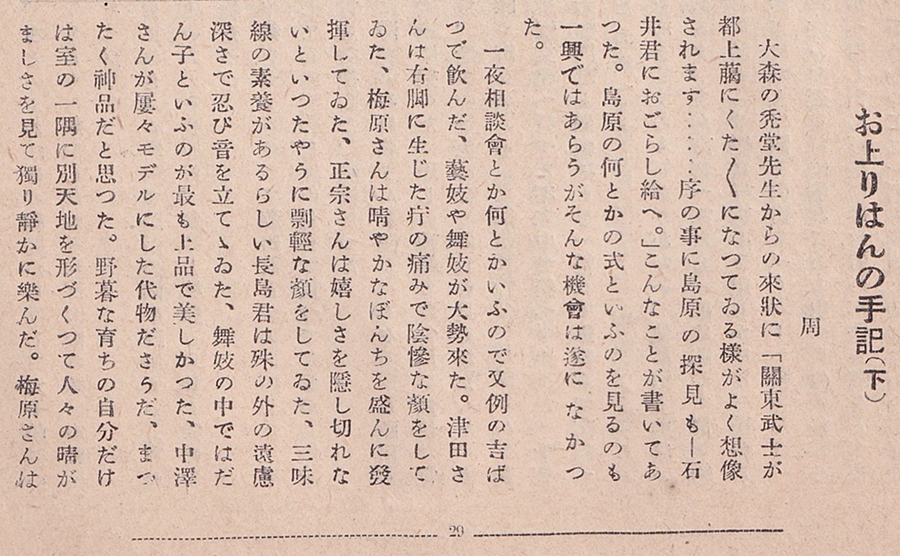 お上りはんの手記(下)
周
大森の禿堂先生からの來狀に「關東武士が
都上﨟にくた〱になつてゐる樣がよく想像
されます‥‥‥序の事に島原の探見も―石
井君におごらし給へ。」こんなことが書いてあ
つた。島原の何とかの式といふのを見るのも
一興ではあらうがそんな機會は遂になかつ
た。
一夜相談會とか何とかいふので又例の吉ば
つで飮んだ、藝妓や舞妓が大勢來た。津田さ
んは右脚に生じた疔の痛みで陰慘な顏をして
ゐた、梅原さんは晴やかなぼんちを盛んに發
揮してゐた、正宗さんは嬉しさを隱し切れな
いといつたやうに剽輕な顏をしてゐた、三味
線の素養があるらしい長島君は殊の外の遠慮
深さで忍び音を立てゝゐた、舞妓の中ではだ
ん子といふのが最も上品で美しかつた、中澤
さんが屢々モデルにした代物ださうだ、まつ
たく神品だと思つた。野暮な育ちの自分だけ
は室の一隅に別天地を形づくつて人々の晴が
ましさを見て獨り靜かに樂んだ。梅原さんは
29